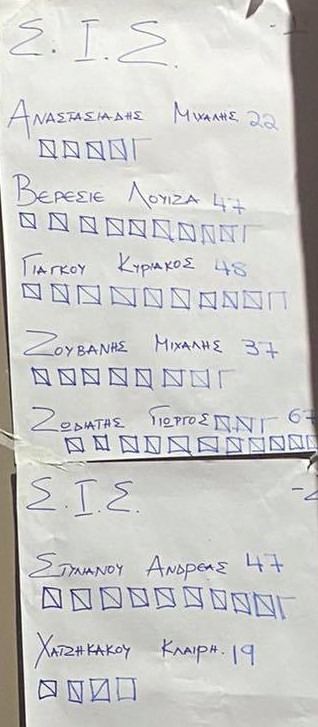 Σ. Ι. Σ.
ΑΝΑΣΤΑΣΙΑΔΗΣ ΜΙΧΑΛΗΣ 22
ΒΕΡΕΣΙΕ ΛΟΥΙΖΑ 47
ΓΙΑΓΚΟΥ ΚΥΡΙΑΚΟΣ 48
ΖΟΥΒΑΝΗΣ ΜΙΧΑΛΗΣ 37
ΖΩΔΙΑΤΗΣ ΓΙΩΡΓΟΣ 67
Σ. Ι. Σ.
ΣΤΥΛΙΑΝΟΥ ΑΝΔΡΕΑΣ 47
ΧΑΤΖΗΚΑΚΟΥ ΚΛΑΙΡΗ. 19